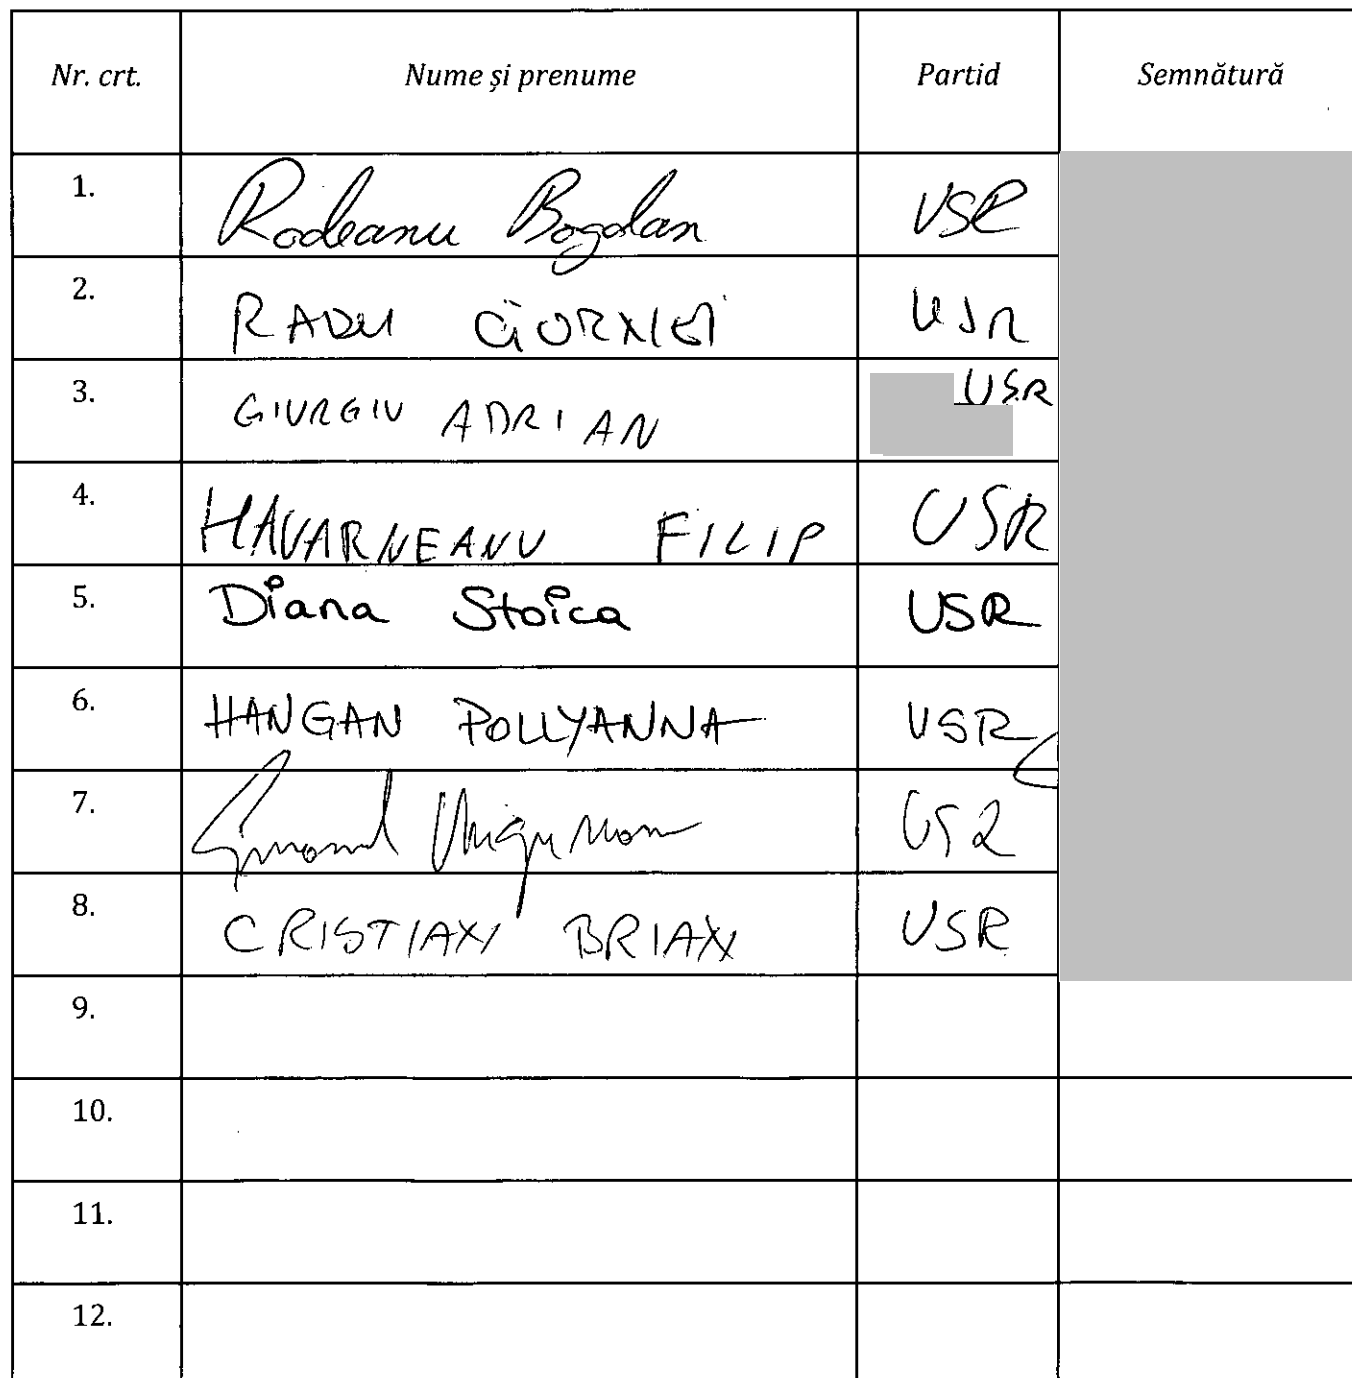 Nr. crt. Nume și prenume Partid Semnătură
1. Rodeanu Bogdan USR
2. RADU CIORNEI USR
3. GIURGIU ADRIAN USR
4. HAVARNEANU FILIP USR
5. Diana Stoica USR
6. HANGAN POLLYANNA USR
7. USR
8. CRISTIAN BRIAN USR
9.
10.
11.
12.